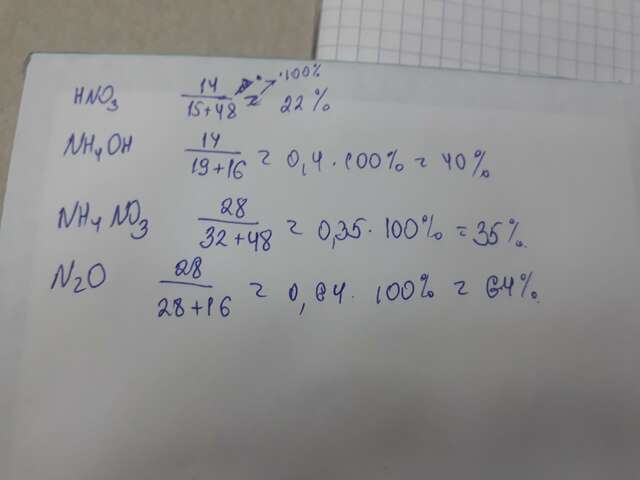 HNO₃ 14/(15+48) · 100% = 22%
NH₄OH 14/(19+16) = 0,4 · 100% = 40%
NH₄NO₃ 28/(32+48) = 0,35 · 100% = 35%
N₂O 28/(28+16) = 0,64 · 100% = 64%